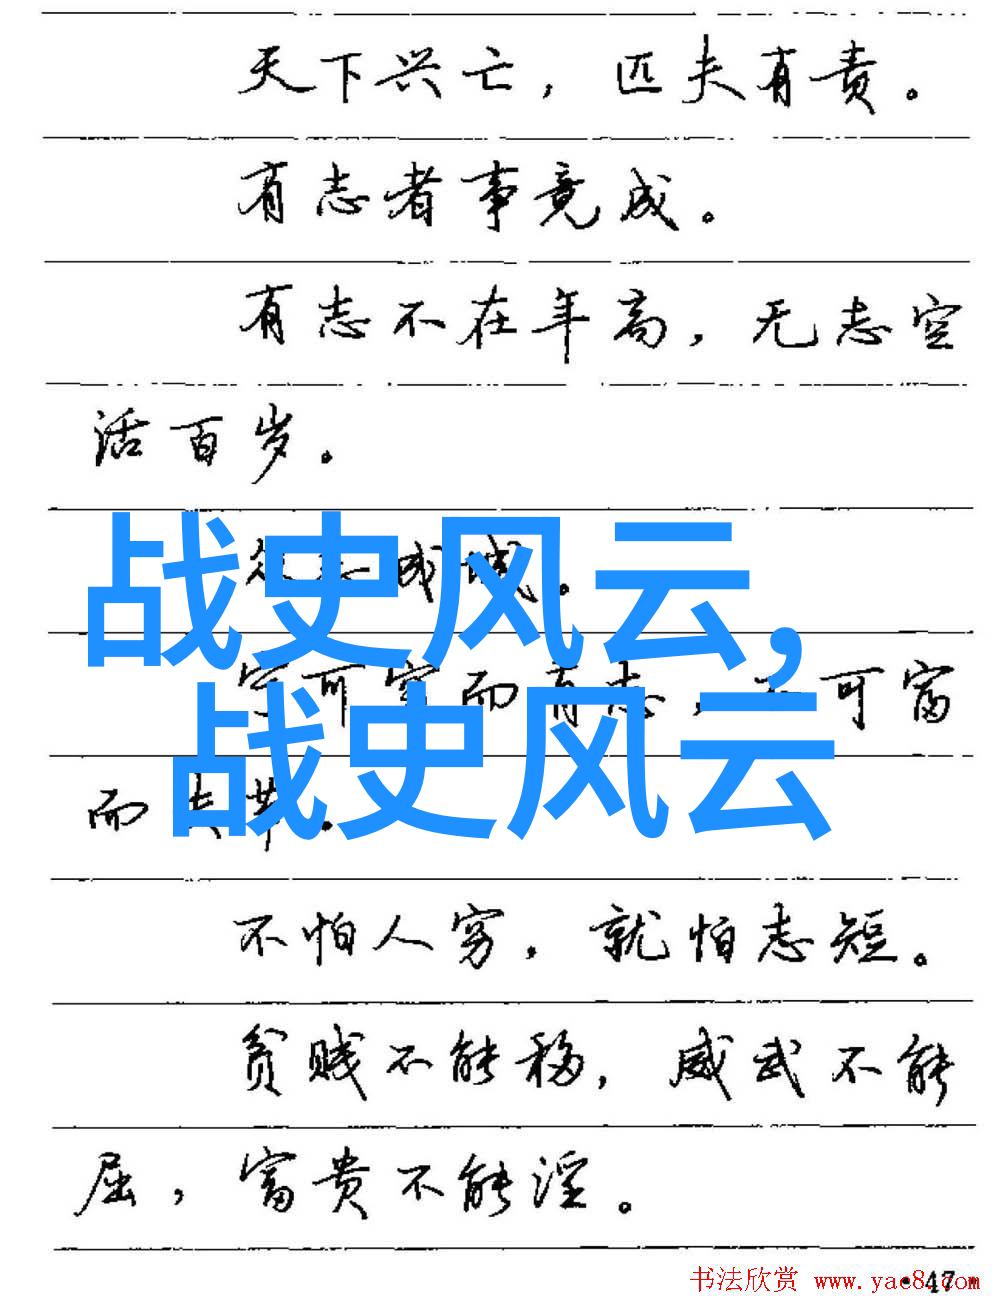 天下兴亡，匹夫有责。
有志者事竟成。
有志不在年高，无志空
活百岁。
众志成城。
战史风云，
宁可穷而有志，不可富
战史风云
而失节。
不怕人穷，就怕志短。
贫贱不能移，威武不能
屈，富贵不能淫。
·47·
书法欣赏 www.yac8.com